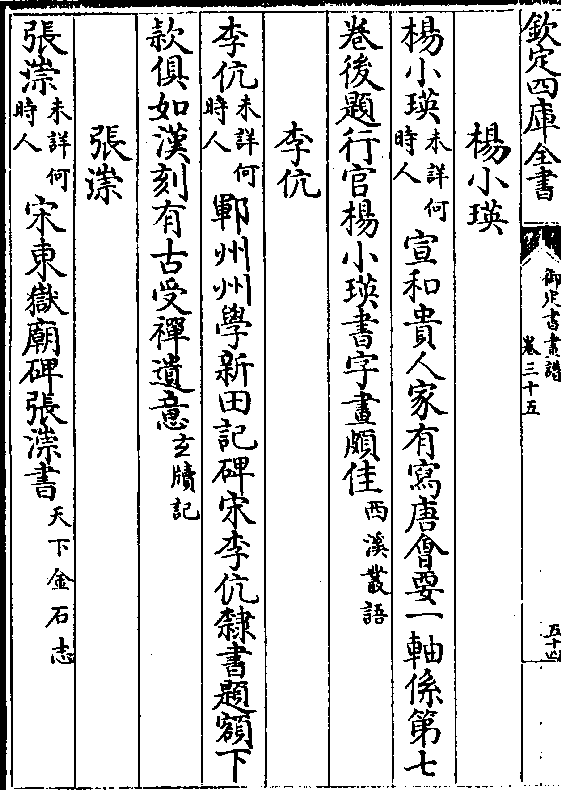 欽定四庫全書
御定書畫譜
卷三十五
五十
楊小瑛
楊小瑛未詳何時人宣和貴人家有寫唐會要一軸係第七
卷後題行官楊小瑛書字畫頗佳西溪叢語
李伉
李伉未詳何時人鄆州州學新田記碑宋李伉隸書題額下
款俱如漢刻有古受禪遺意玄牘記
張漴
張漴未詳何時人宋東嶽廟碑張漴書天下金石志